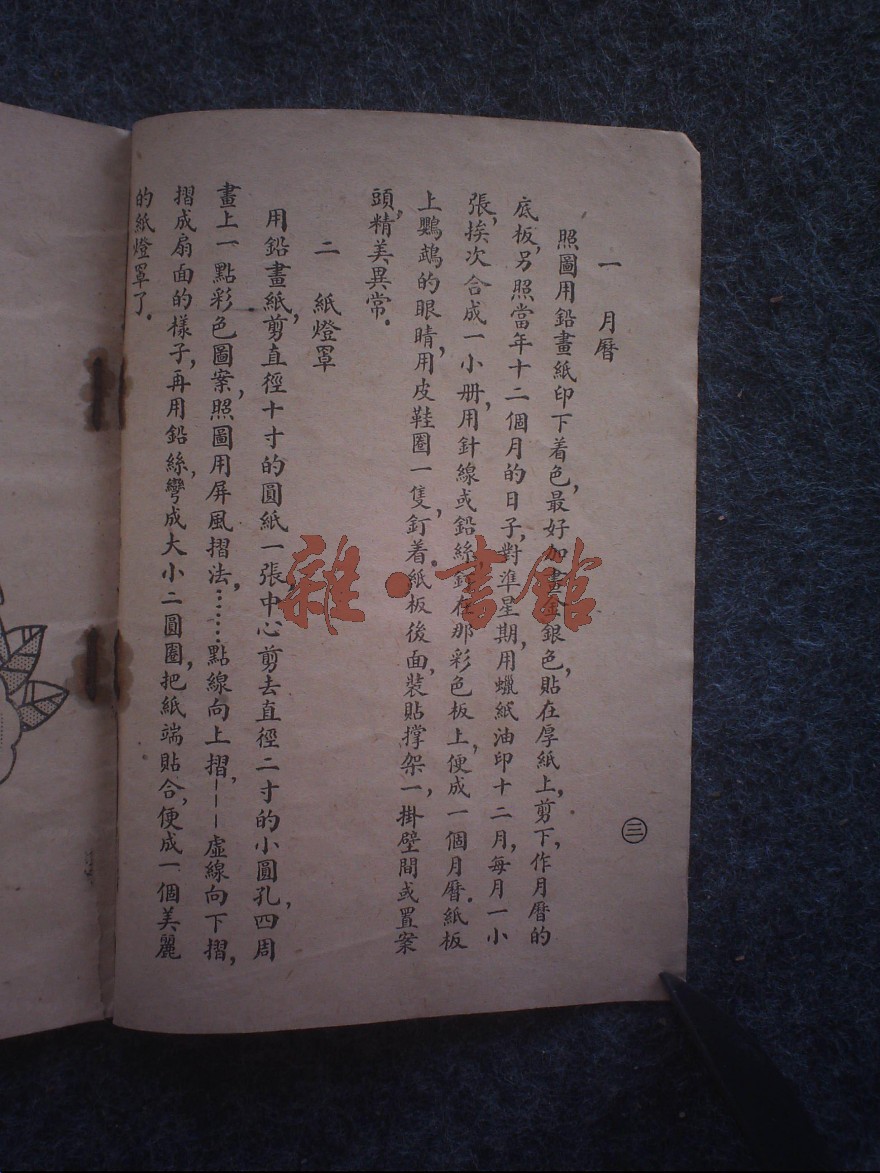 ㊂
一　月曆
照圖用鉛畫紙印下着色，最好加畫金銀色，貼在厚紙上，剪下，作月曆的
底板，另照當年十二個月的日子，對準星期，用蠟紙油印十二月，每月一小
張，挨次合成一小册，用針線或鉛絲釘在那彩色板上，便成一個月曆。紙板
上鸚鵡的眼睛，用皮鞋圈一隻，釘着。紙板後面，裝貼撑架一，掛壁間或置案
頭，精美異常。
二　紙燈罩
用鉛畫紙，剪直徑十寸的圓紙一張，中心剪去直徑二寸的小圓孔，四周
畫上一點彩色圖案，照圖用屏風摺法，……點線向上摺，———虛線向下摺，
摺成扇面的樣子，再用鉛絲，彎成大小二圓圈，把紙端貼合，便成一個美麗
的紙燈罩了。
雜·書館